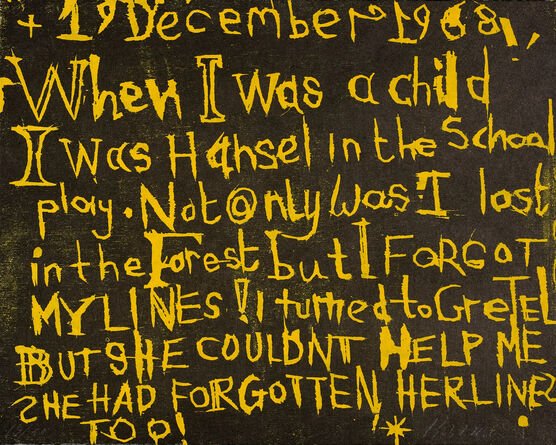 + 19 December 1968 !,
When I was a child
I was Hansel in the School
play. Not @nly was I lost
in the Forest but I FORGOT
MY LINES! I turned to GreTEL
BUT SHE COULDNT HELP ME
SHE HAD FORGOTTEN HER LINES
TOO! !*